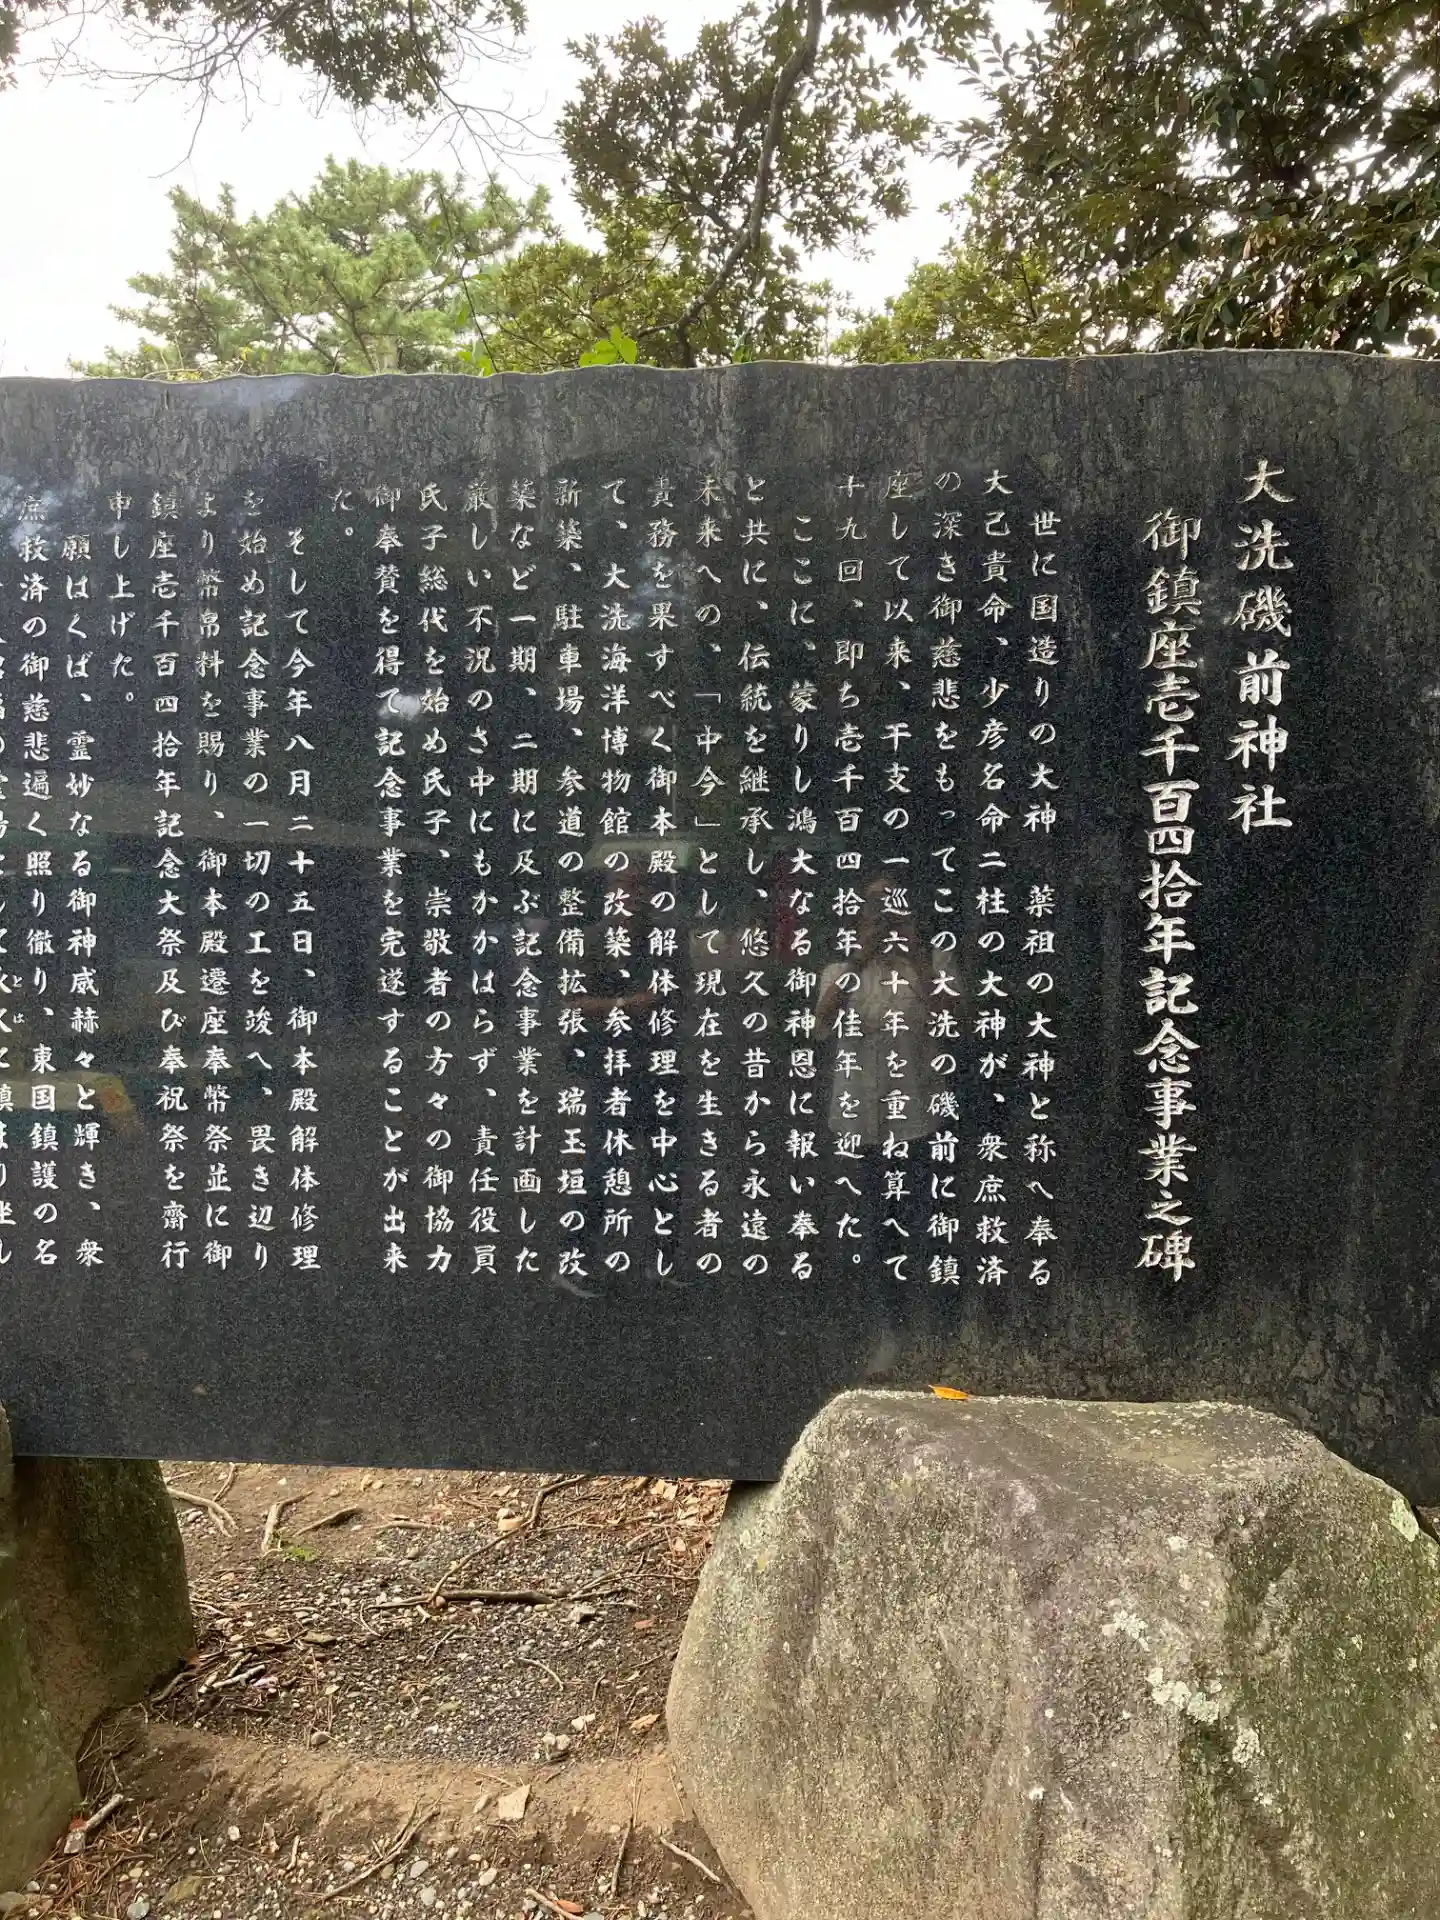 大洗磯前神社
御鎮座壱千百四拾年記念事業之碑
世に国造りの大神　薬祖の大神と称へ奉る
大己貴命、少彦名命二柱の大神が、衆庶救済
の深き御慈悲をもってこの大洗の磯前に御鎮
座して以来、干支の一巡六十年を重ね算へて
十九回、即ち壱千百四拾年の佳年を迎へた。
ここに、蒙りし鴻大なる御神恩に報い奉る
と共に、伝統を継承し、悠久の昔から永遠の
未来への、「中今」として現在を生きる者の
責務を果すべく御本殿の解体修理を中心とし
て、大洗海洋博物館の改築、参拝者休憩所の
新築、駐車場、参道の整備拡張、瑞玉垣の改
築など一期、二期に及ぶ記念事業を計画した
厳しい不況のさ中にもかかはらず、責任役員
氏子総代を始め氏子、崇敬者の方々の御協力
御奉賛を得て記念事業を完遂することが出来
た。
そして今年八月二十五日、御本殿解体修理
を始め記念事業の一切の工を竣へ、畏き辺り
より幣帛料を賜り、御本殿遷座奉幣祭並に御
鎮座壱千百四拾年記念大祭及び奉祝祭を齋行
申し上げた。
願はくば、霊妙なる御神威赫々と輝き、衆
庶救済の御慈悲遍く照り徹り、東国鎮護の名